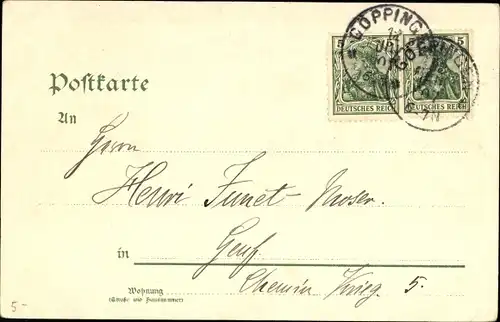 GÖPPINGEN
5
5
DEUTSCHES REICH
DEUTSCHES REICH
Postkarte
An
Herrn
Henri Junet-Moser.
in
Genf.
Wohnung
(Straße und Hausnummer)
Chemin Krieg 5.
5-